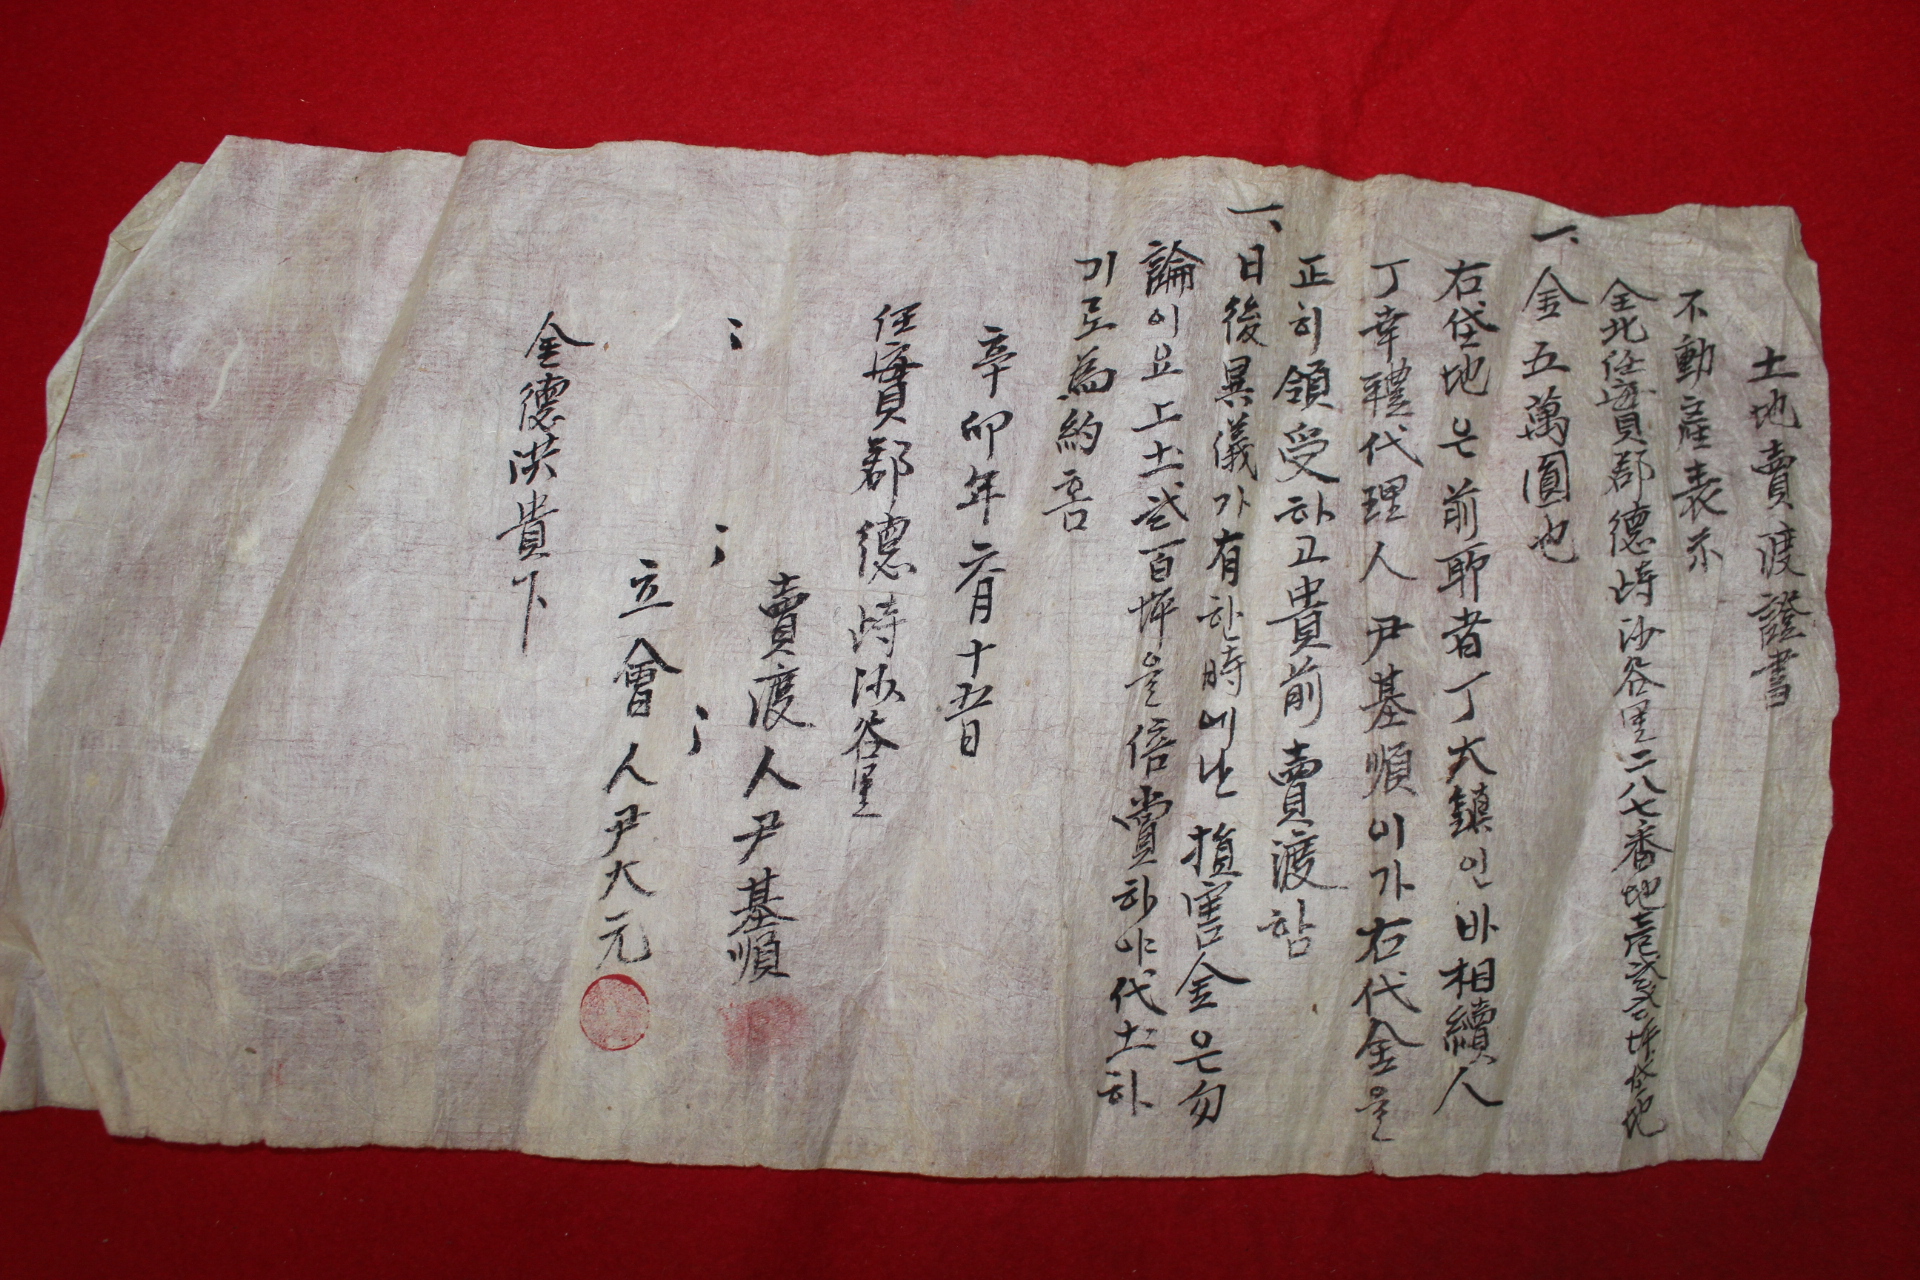 土地賣渡證書
不動産表示
全北任實郡德峙沙谷里二八七番地壱弐三坪垈地
一、金五萬圓也
右垈地은前耶者丁大鎮인바相續人
丁幸禮代理人尹基順이가右代金을
正히領受하고貴前賣渡함
一、日後異儀가有한時에난損害金은勿
論이요上土弐百坪을倍賞하야代土하
기로為約홈
辛卯年六月十五日
任實郡德峙沙谷里
賣渡人尹基順
〃〃〃
立會人尹大元
金德洪貴下